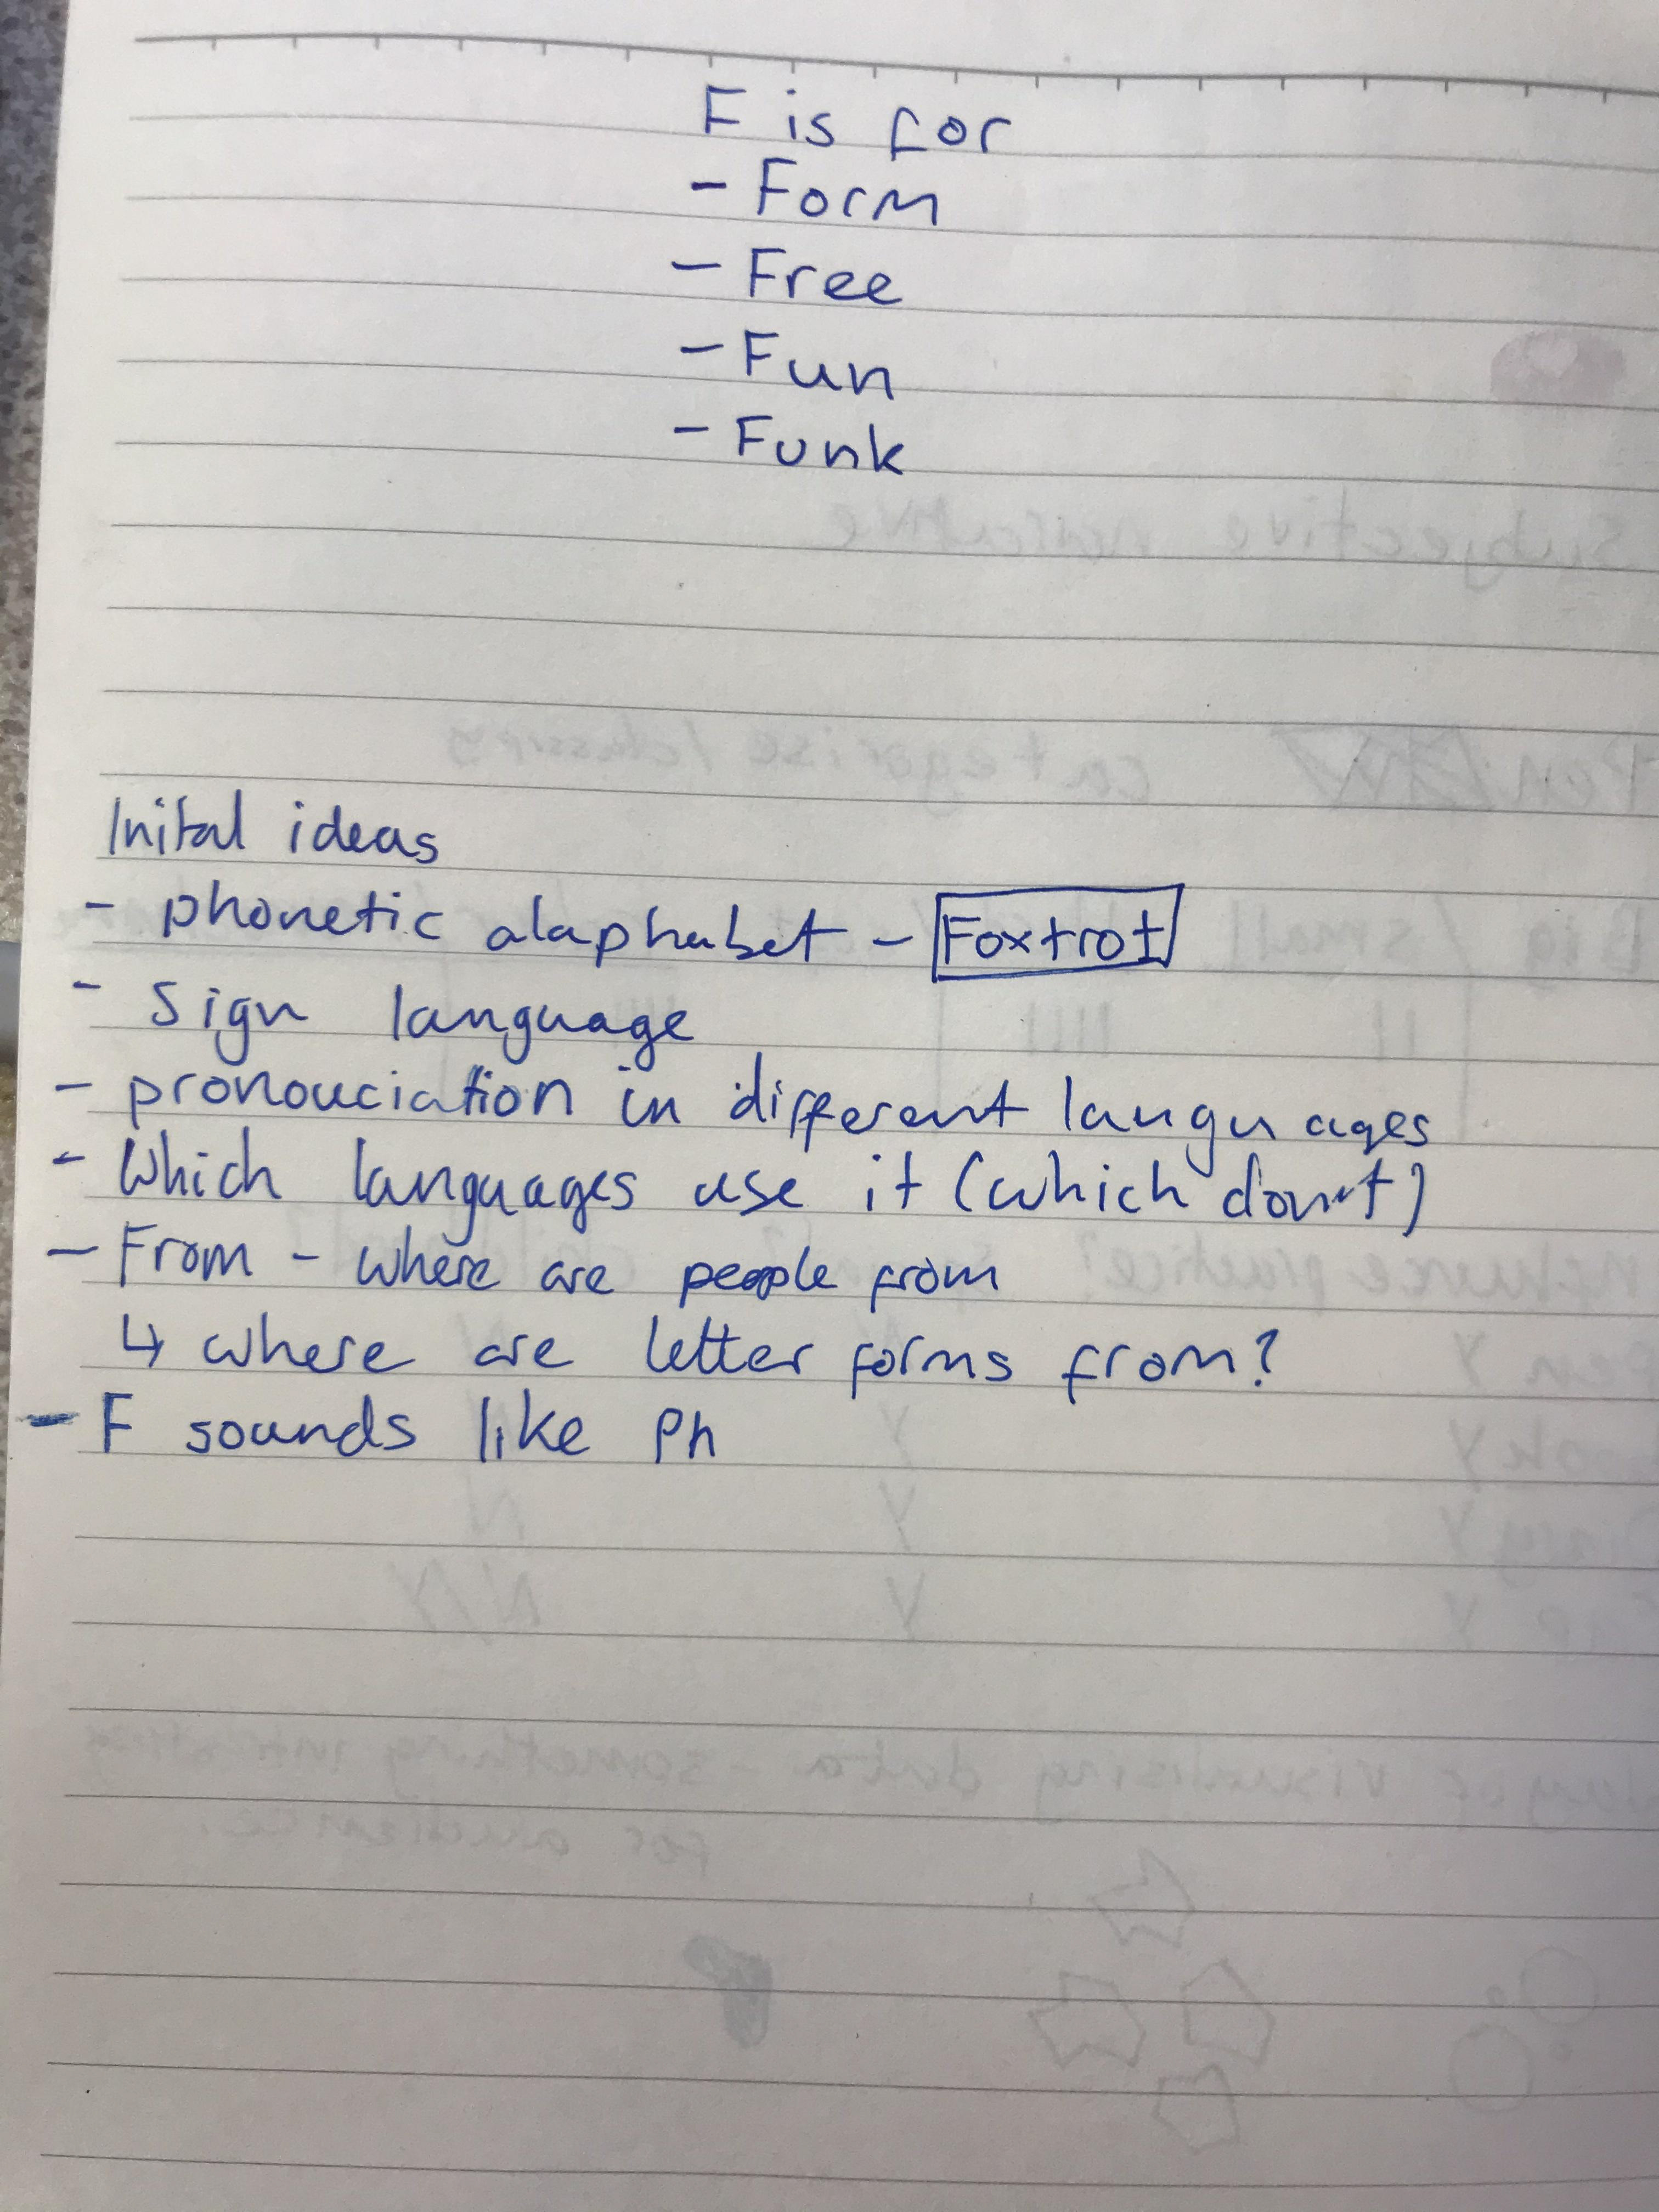 F is for
- Form
- Free
- Fun
- Funk
Inital ideas
- phonetic alaphabet - Foxtrot
- Sign language
- pronouciation in different languages
- Which languages use it (which don't)
- From - where are people from
↳ where are letter forms from?
- F sounds like Ph